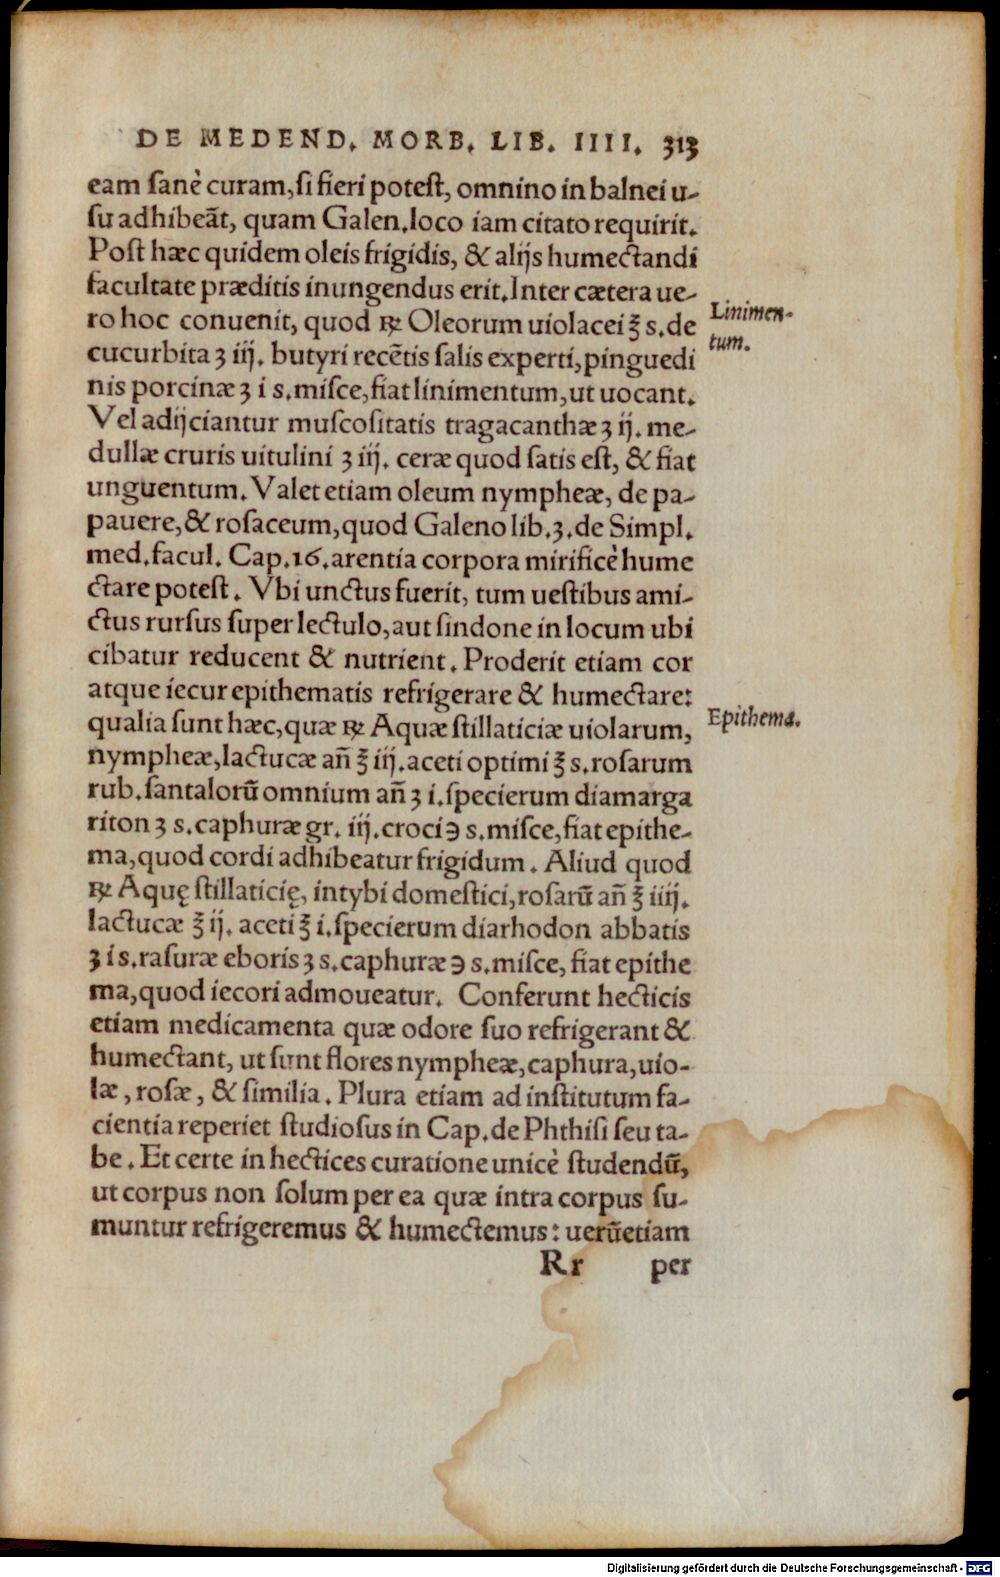 DE MEDEND. MORB. LIB. IIII. 313
eam sanè curam, si fieri potest, omnino in balnei u-
su adhibeāt, quam Galen. loco iam citato requirit.
Post hæc quidem oleis frigidis, & alijs humectandi
facultate præditis inungendus erit. Inter cætera ue-
ro hoc conuenit, quod ℞ Oleorum uiolacei ℥ s. de
Linimen-
cucurbita ʒ iij. butyri recētis salis experti, pinguedi
tum.
nis porcinæ ʒ i s. misce, fiat linimentum, ut uocant.
Vel adijciantur muscositatis tragacanthæ ʒ ij. me-
dullæ cruris uitulini ʒ iij. ceræ quod satis est, & fiat
unguentum. Valet etiam oleum nympheæ, de pa-
pauere, & rosaceum, quod Galeno lib. 3. de Simpl.
med. facul. Cap. 16. arentia corpora mirificè hume
ctare potest. Vbi unctus fuerit, tum uestibus ami-
ctus rursus super lectulo, aut sindone in locum ubi
cibatur reducent & nutrient. Proderit etiam cor
atque iecur epithematis refrigerare & humectare:
qualia sunt hæc, quæ ℞ Aquæ stillaticiæ uiolarum,
Epithema.
nympheæ, lactucæ añ ℥ iij. aceti optimi ℥ s. rosarum
rub. santalorū omnium añ ʒ i. specierum diamarga
riton ʒ s. caphuræ gr. iij. croci ℈ s. misce, fiat epithe-
ma, quod cordi adhibeatur frigidum. Aliud quod
℞ Aquę stillaticię, intybi domestici, rosarū añ ℥ iiij.
lactucæ ℥ ij. aceti ℥ i. specierum diarhodon abbatis
ʒ i s. rasuræ eboris ʒ s. caphuræ ℈ s. misce, fiat epithe
ma, quod iecori admoueatur. Conferunt hecticis
etiam medicamenta quæ odore suo refrigerant &
humectant, ut sunt flores nympheæ, caphura, uio-
læ, rosæ, & similia. Plura etiam ad institutum fa-
cientia reperiet studiosus in Cap. de Phthisi seu ta-
be. Et certe in hectices curatione unicè studendū,
ut corpus non solum per ea quæ intra corpus su-
muntur refrigeremus & humectemus: uerūetiam
Rr per
Digitalisierung gefördert durch die Deutsche Forschungsgemeinschaft - DFG